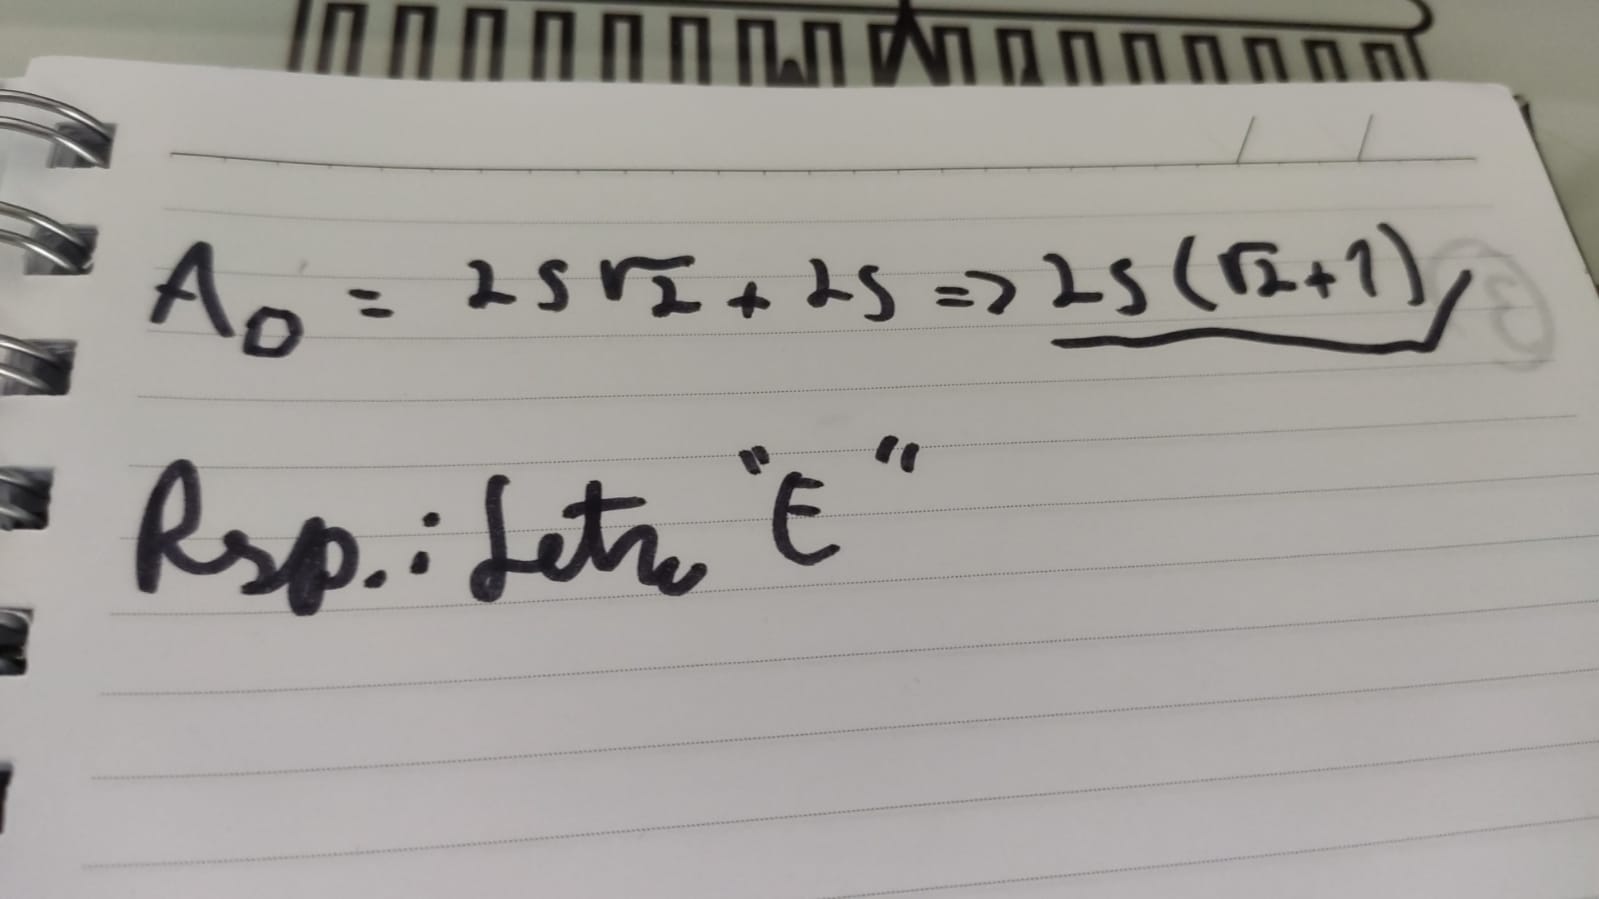 A□ = 25√2 + 25 => 25(√2+1)
Rsp.: Letra "E"